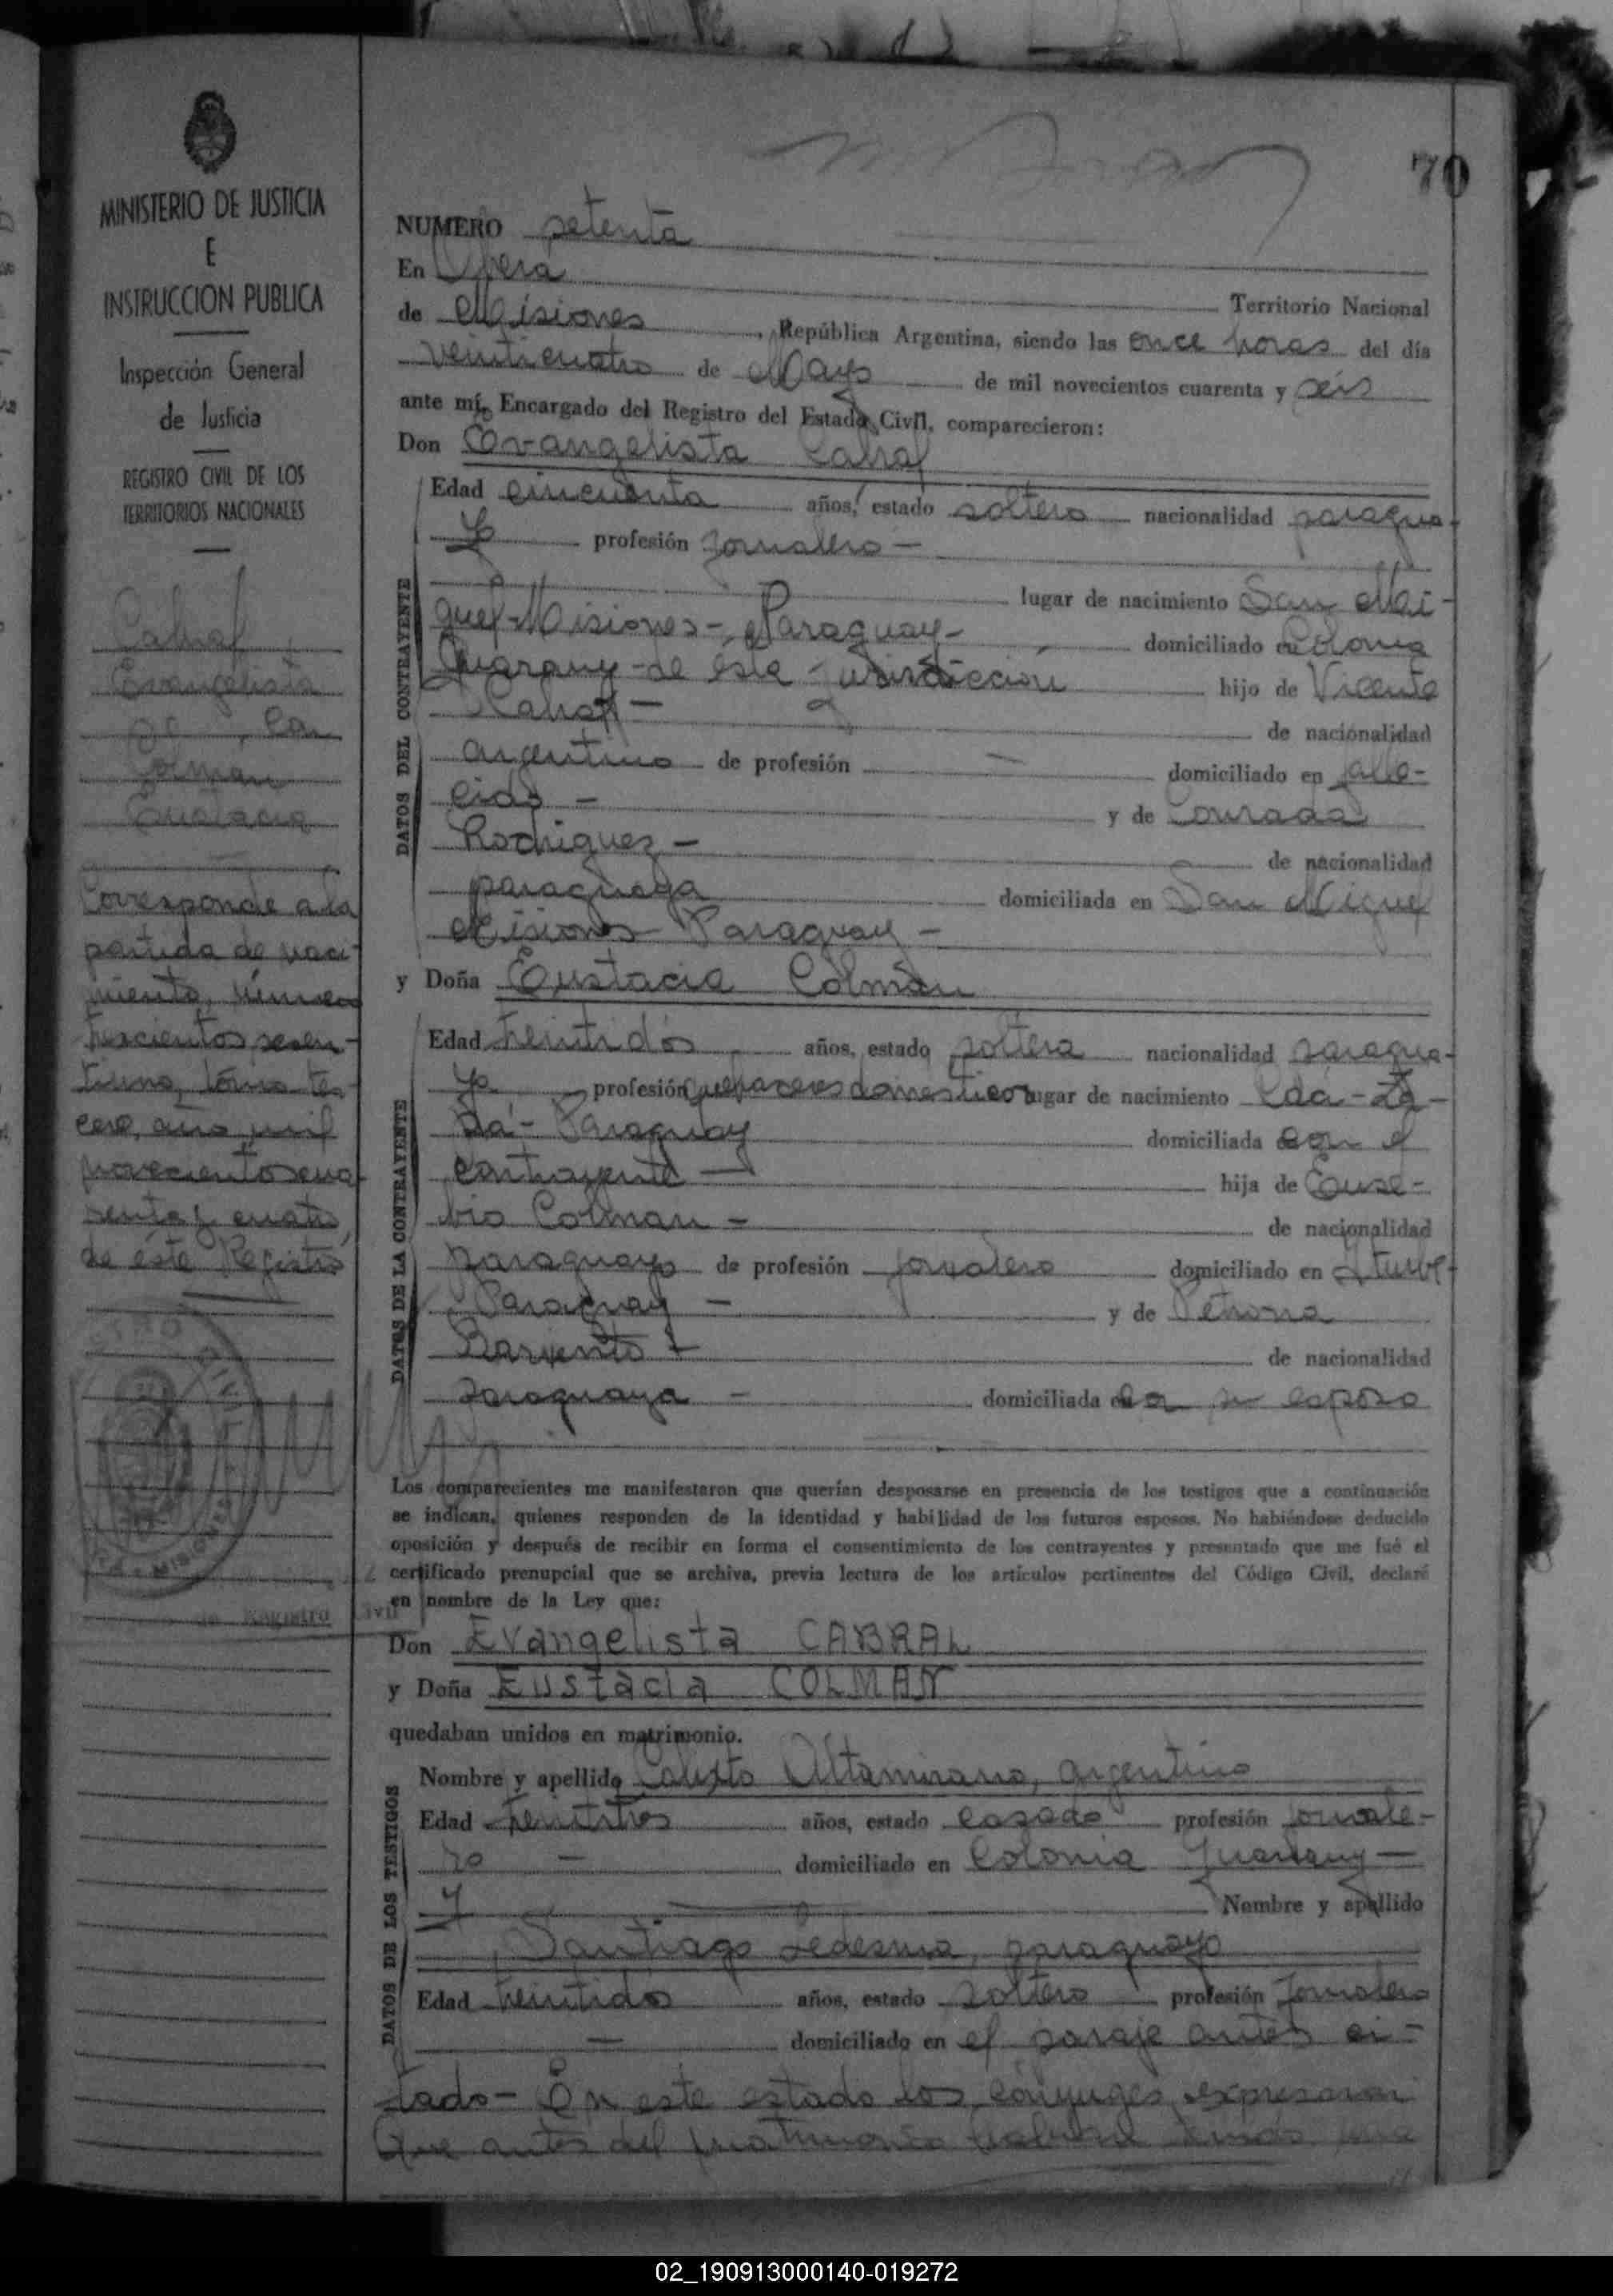 70
MINISTERIO DE JUSTICIA
E
INSTRUCCION PUBLICA
Inspección General
de Justicia
REGISTRO CIVIL DE LOS
TERRITORIOS NACIONALES
Cabral
Evangelista
con
Colman
Eustacia
Corresponde a la
partida de naci-
miento, número
trescientos sesen-
tiuno, tomo ter-
cero, año mil
novecientos cua-
renta y cuatro
de éste Registro
NUMERO setenta
En Obera Territorio Nacional
de Misiones, República Argentina, siendo las once horas del día
veinticuatro de Mayo de mil novecientos cuarenta y seis
ante mí, Encargado del Registro del Estado Civil, comparecieron:
Don Evangelista Cabral
DATOS DEL CONTRAYENTE
Edad cincuenta años, estado soltero nacionalidad paragua-
yo profesión Jornalero -
lugar de nacimiento San Mi-
guel - Misiones - Paraguay - domiciliado en Colonia
Guarany - de éste jurisdicción hijo de Vicente
Cabral - de nacionalidad
argentino de profesión — domiciliado en falle-
cido - y de Conrada
Rodriguez - de nacionalidad
paraguaya domiciliada en San Miguel
Misiones - Paraguay -
y Doña Eustacia Colmán
DATOS DE LA CONTRAYENTE
Edad treintidós años, estado soltera nacionalidad paragua-
ya profesión quehaceres domesticos lugar de nacimiento
Paraguay domiciliada con el
contrayente — hija de Euse-
bio Colman - de nacionalidad
paraguayo de profesión jornalero domiciliado en Iturbe-
Paraguay - y de Petrona
Barriento - de nacionalidad
paraguaya - domiciliada con su esposo
Los comparecientes me manifestaron que querían desposarse en presencia de los testigos que a continuación
se indican, quienes responden de la identidad y habilidad de los futuros esposos. No habiéndose deducido
oposición y después de recibir en forma el consentimiento de los contrayentes y presentado que me fué el
certificado prenupcial que se archiva, previa lectura de los artículos pertinentes del Código Civil, declaré
en nombre de la Ley que:
Don Evangelista CABRAL
y Doña Eustacia COLMAN
quedaban unidos en matrimonio.
DATOS DE LOS TESTIGOS
Nombre y apellido Calixto Altamirano, argentino
Edad treintitres años, estado casado profesión jornale-
ro - domiciliado en Colonia Guarany —
y Nombre y apellido
Santiago Ledesma, paraguayo
Edad treintidós años, estado soltero profesión Jornalero
— domiciliado en el paraje antes ci-
tado - En este estado los cónyuges expresaron
Que antes del matrimonio habian tenido una
02_190913000140-019272